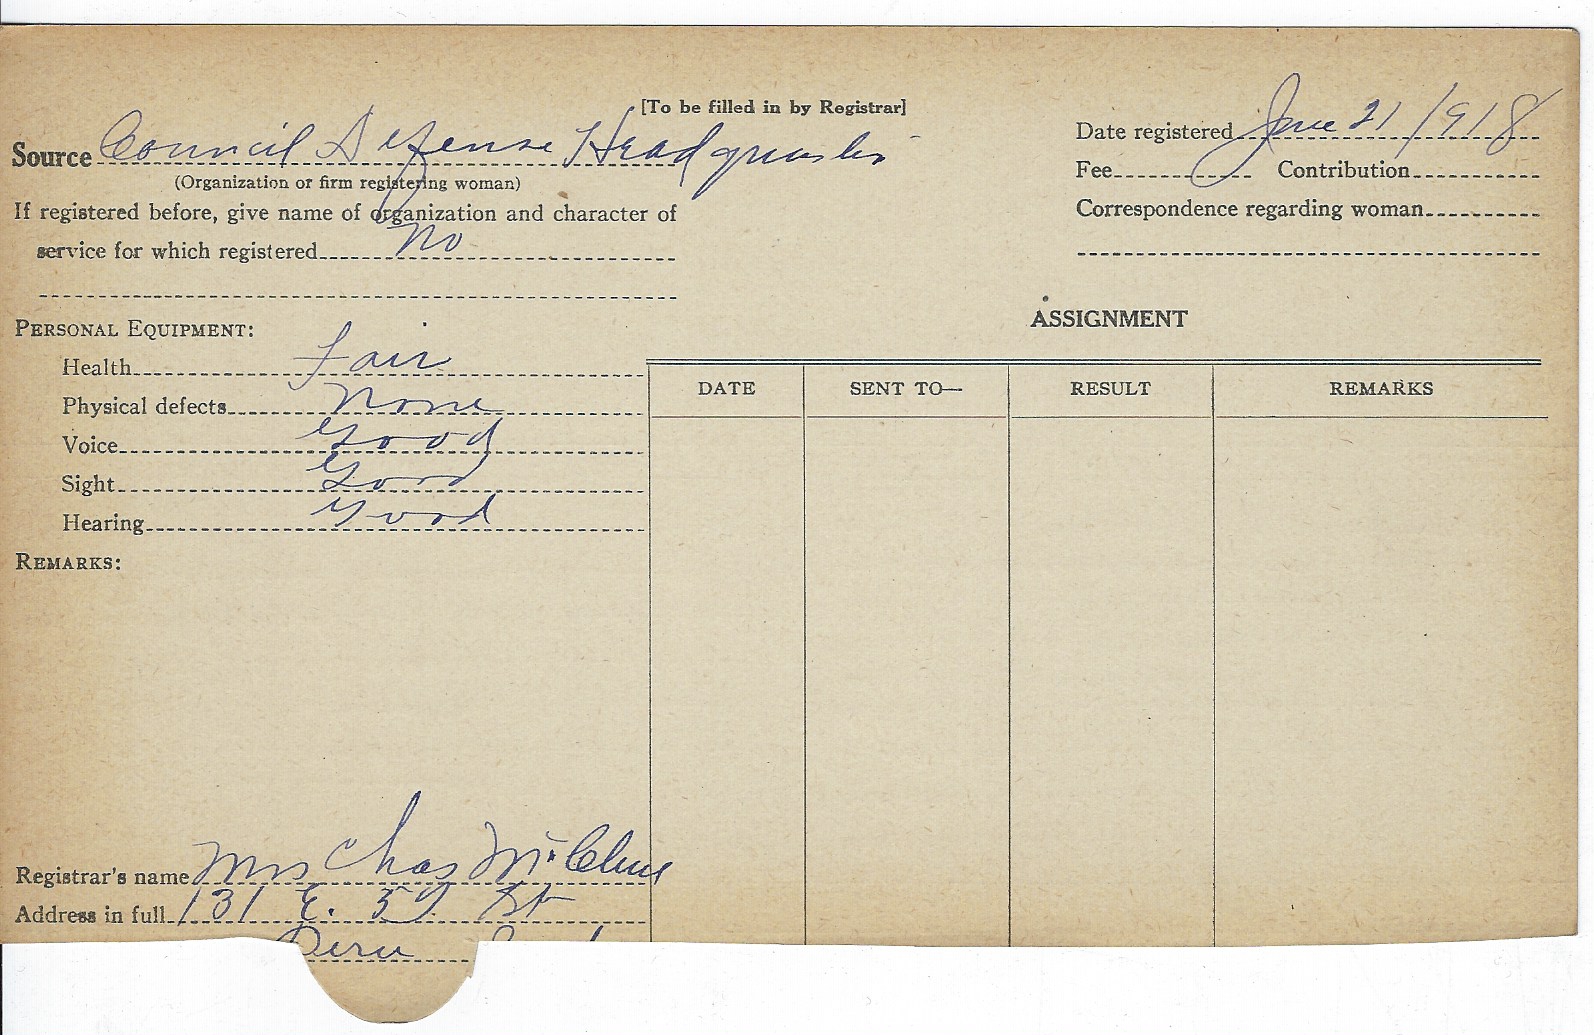 [To be filled in by Registrar]
Source Council Defense Headquarters
(Organization or firm registering woman)
If registered before, give name of organization and character of
service for which registered No
Date registered June 21 1918
Fee Contribution
Correspondence regarding woman
PERSONAL EQUIPMENT:
Health Fair
Physical defects None
Voice Good
Sight Good
Hearing Good
REMARKS:
ASSIGNMENT
DATE SENT TO— RESULT REMARKS
Registrar's name Mrs Chas McClure
Address in full 131 E. 5 St
Peru